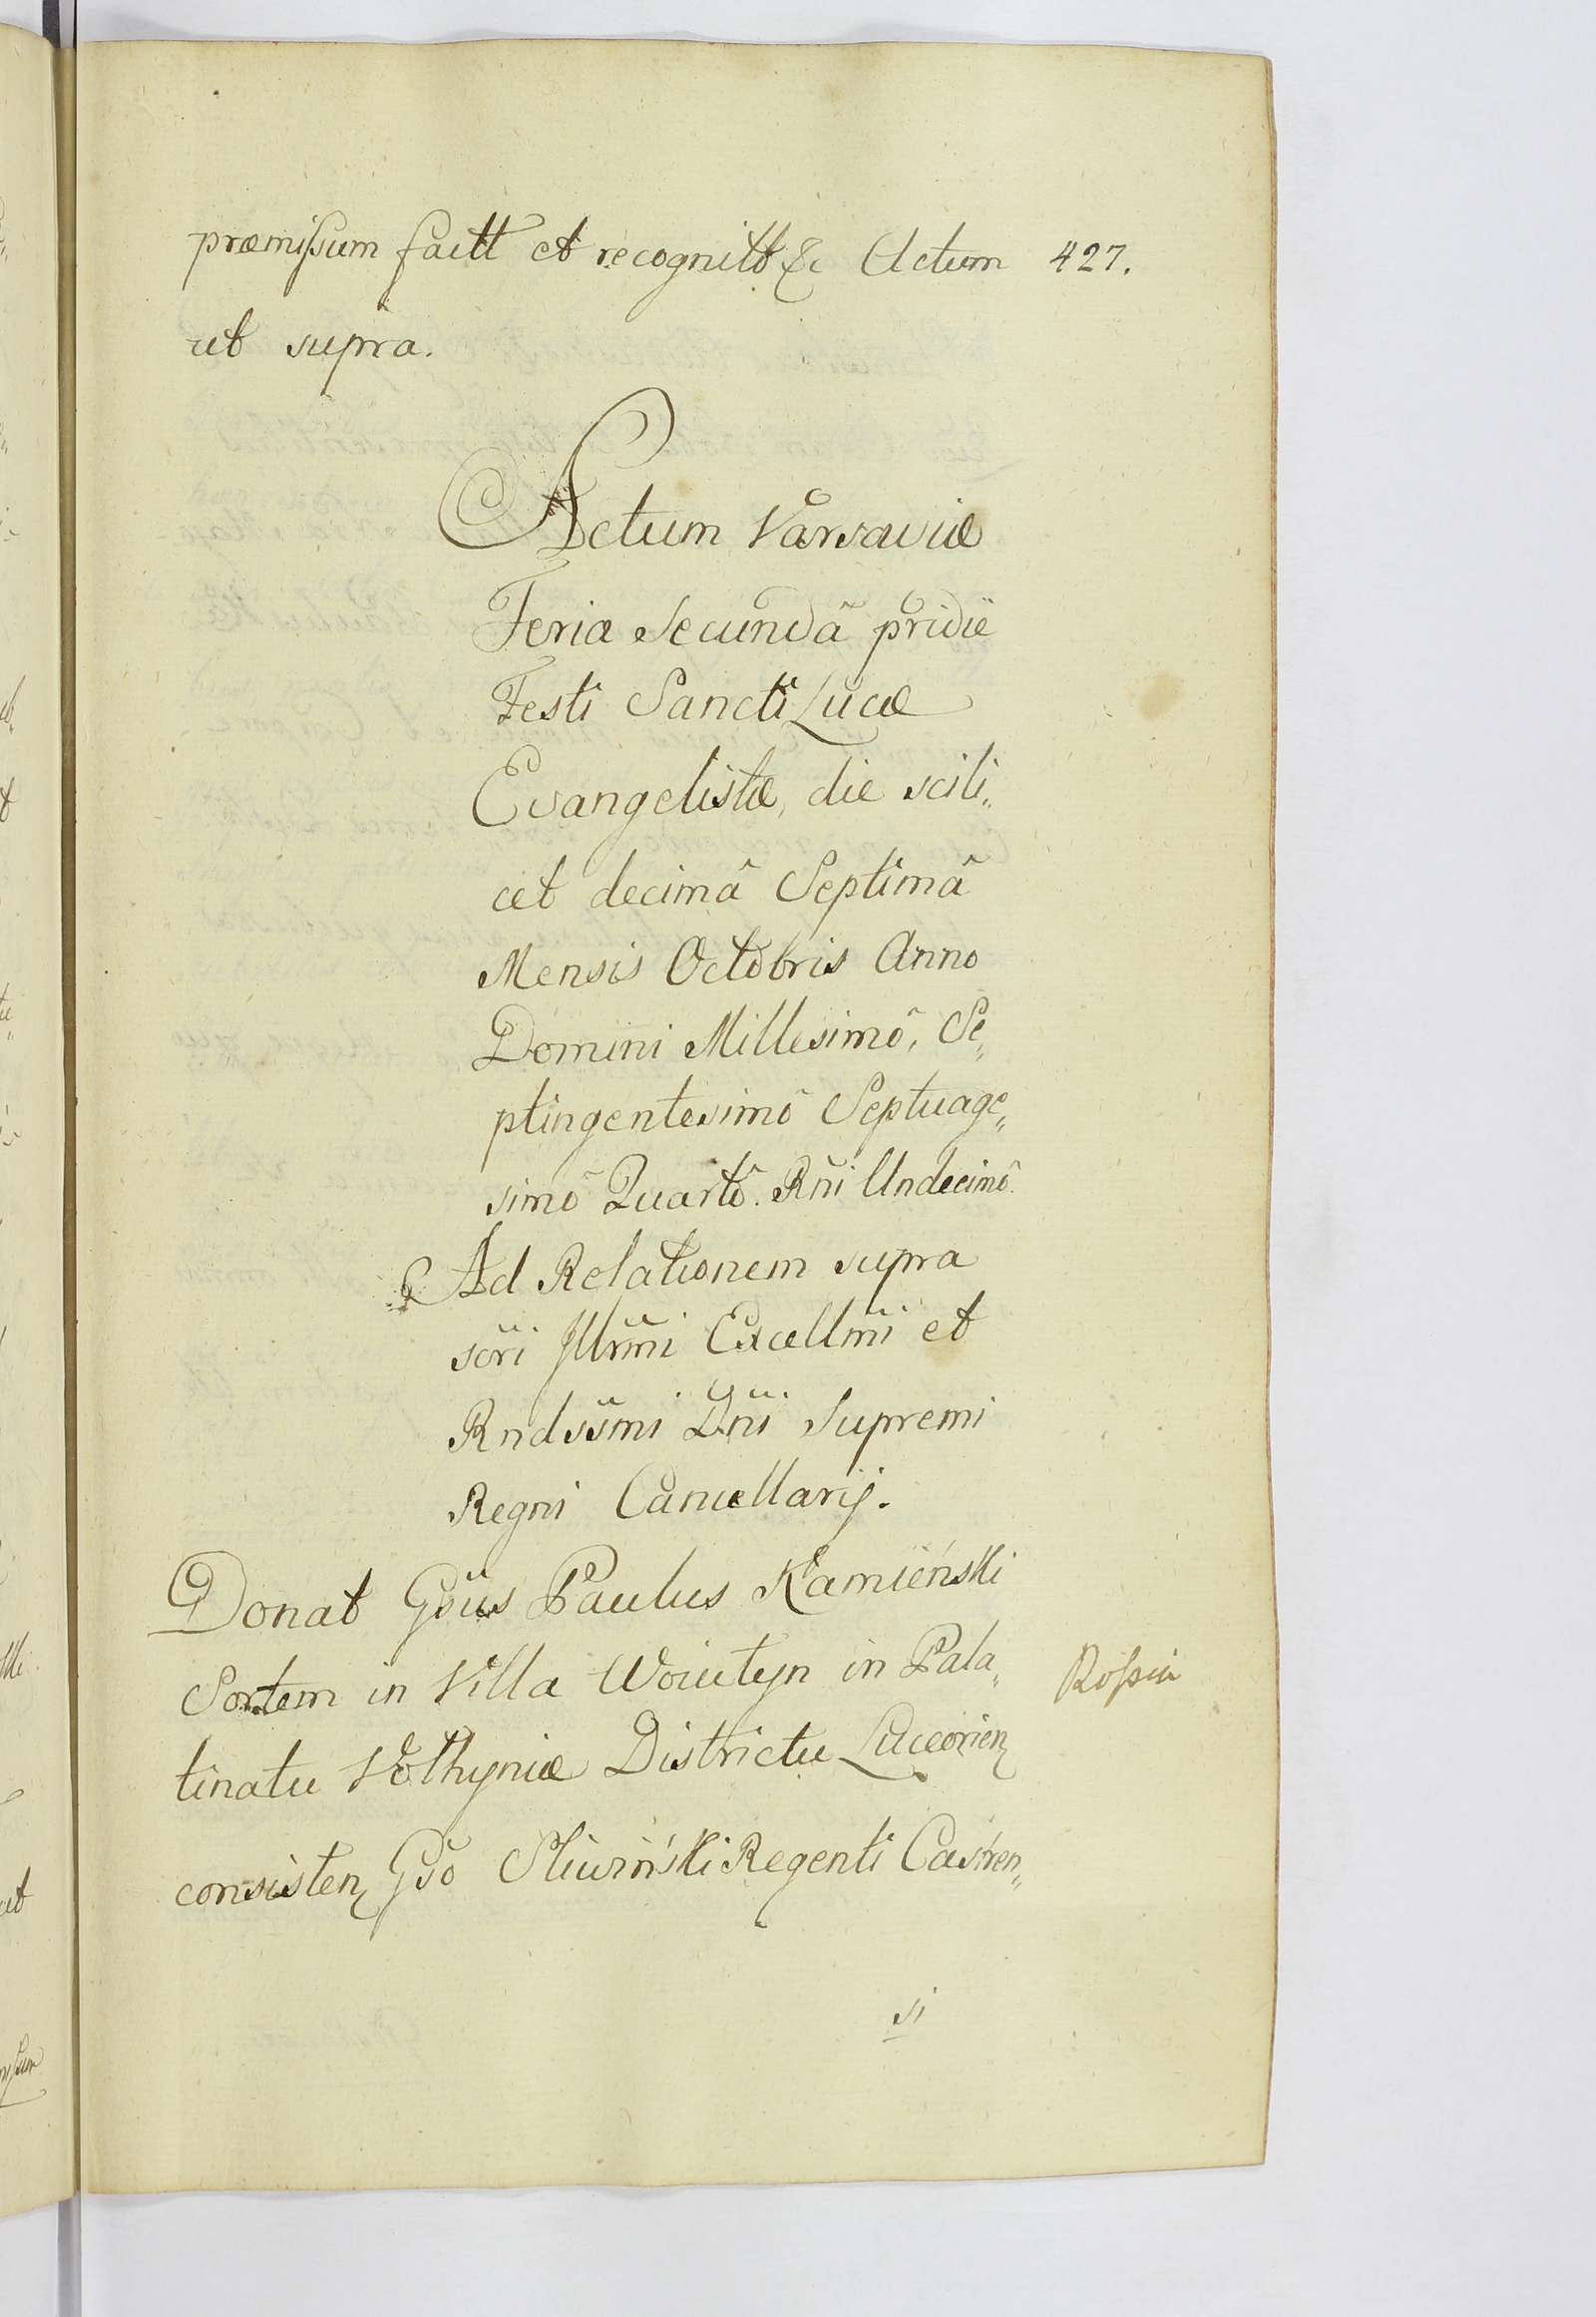 præmissum factt et recognitt &c Actum 427.
ut supra.
Actum Varsaviæ
Feria Secundâ pridie
Festi Sancti Lucæ
Evangelistæ, die scili„
cet decimâ Septimâ
Mensis Octobris Anno
Domini Millesimô, Se„
ptingentesimô Septuage„
simô Quartô. Rñi Undecimô.
Ad Relationem supra
scri Illrmi Excellmi et
Rndssmi Dñi Supremi
Regni Cancellarij.
Donat Gsus Paulus Kamieński
Sortem in Villa Woiutyn in Pala„
tinatu Volhyniæ Districtu Luceorien
consisten Gso Sliwiński Regenti Castren„
si